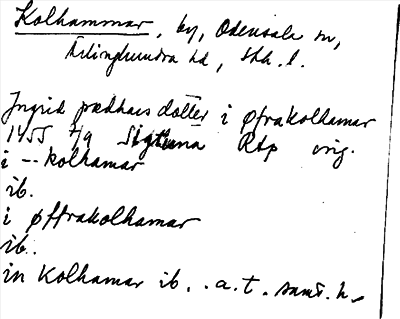 Kolhammar, by, Odensala sn,
Ärlinghundra hd, Sthlm. l.
Ingrid pædhars dotter i øfrakolhamar
1455 7/9 Sigtuna Rap orig.
i -- kolhamar
ib.
i øffrakolhamar
ib.
in Kolhamar ib. . a. t. samt. h.